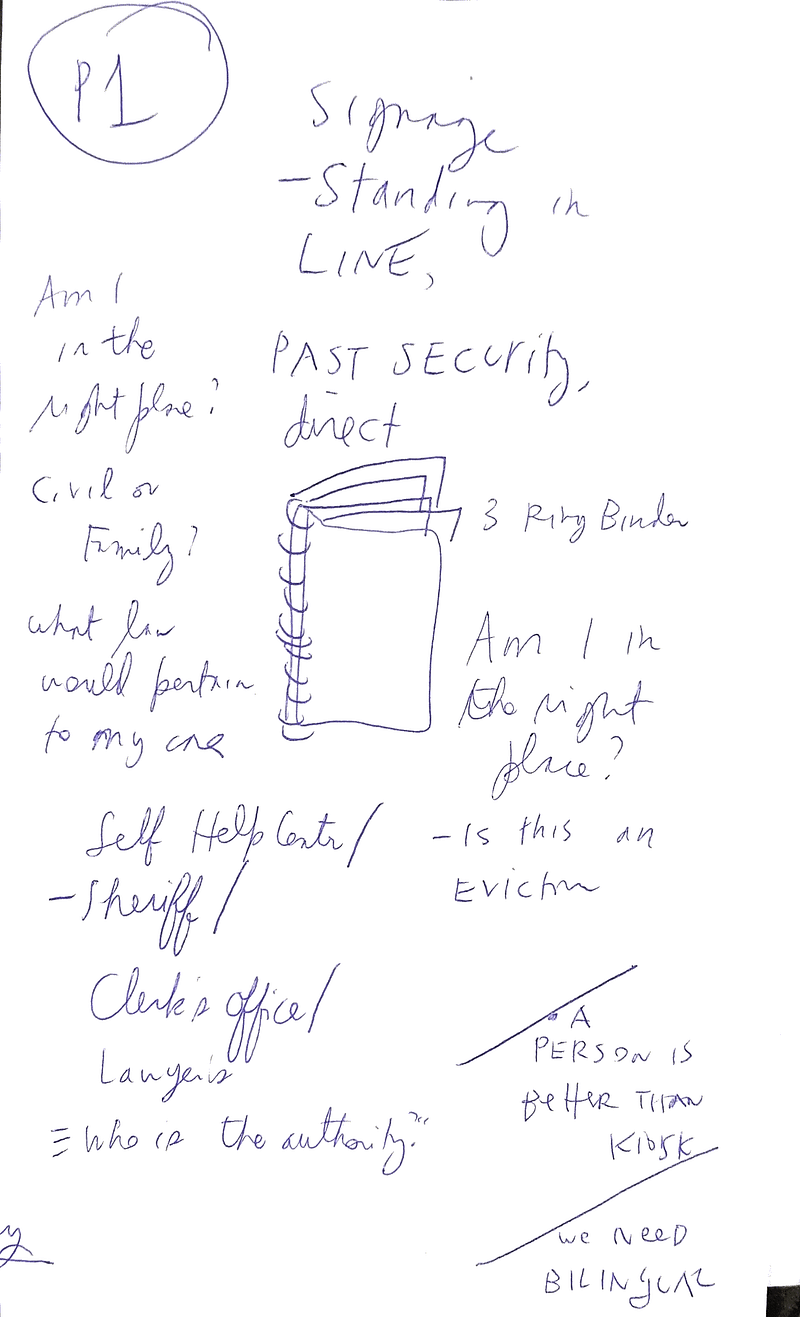 P1
Signage
- Standing in
LINE,
PAST SECurity,
direct
Am I
in the
right place?
Civil or
Family?
what law
would pertain
to my case
3 Ring Binder
Am I in
the right
place?
- Is this an
Eviction
Self Help Centr/
- Sheriff/
Clerk's office/
Lawyers
= Who is the authority?"
A
PERSON IS
BeTTER THAN
KIOSK
we NeeD
BILINgUAL